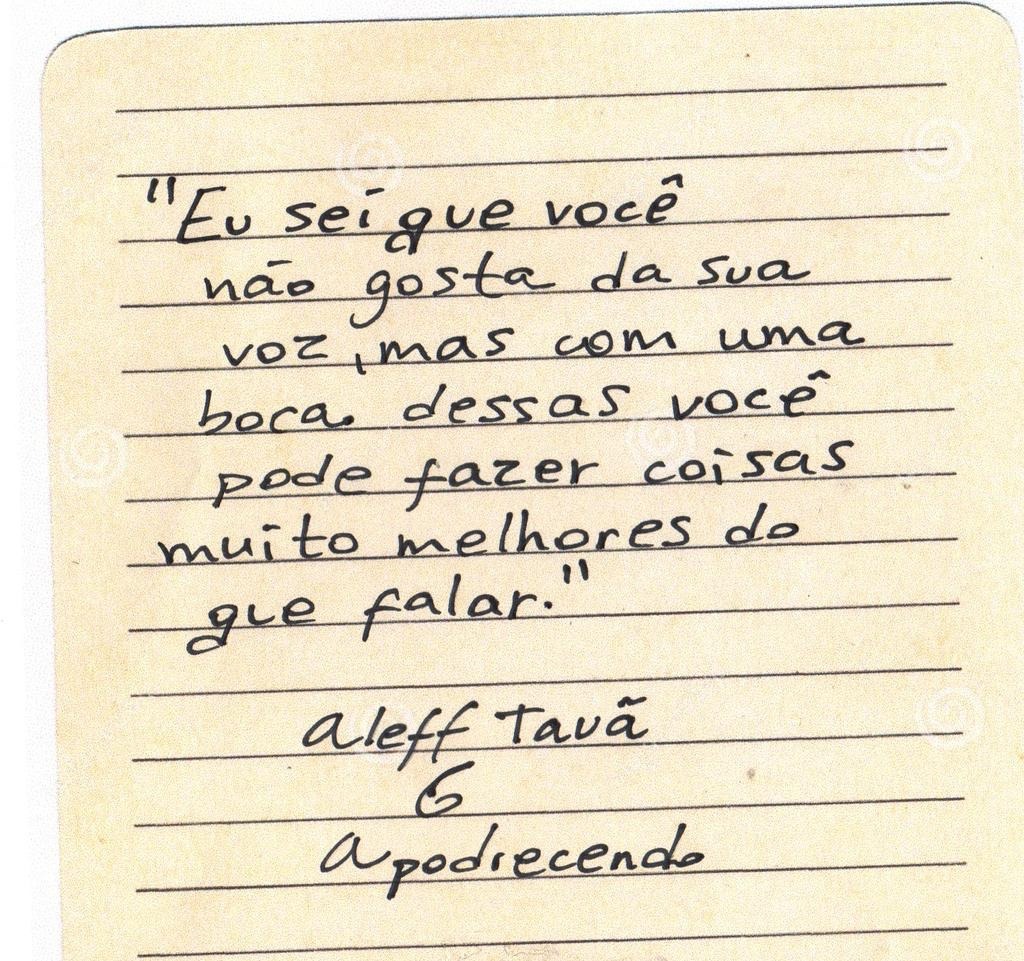 "Eu sei que você
não gosta da sua
voz, mas com uma
boca dessas você
pode fazer coisas
muito melhores do
que falar."
Aleff Tauã
6
Apodrecendo